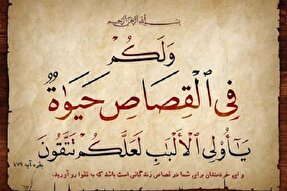 بِسْمِ اللَّهِ الرَّحْمَنِ الرَّحِيمِ
وَلَكُمْ
فِي ٱلْقِصَاصِ حَيَوٰةٌ
يَـٰٓأُولِي ٱلْأَلْبَـٰبِ لَعَلَّكُمْ تَتَّقُونَ
بقره آیه ۱۷۹
و ای خردمندان برای شما در قصاص زندگانی است باشد که به تقوا رو آورید.